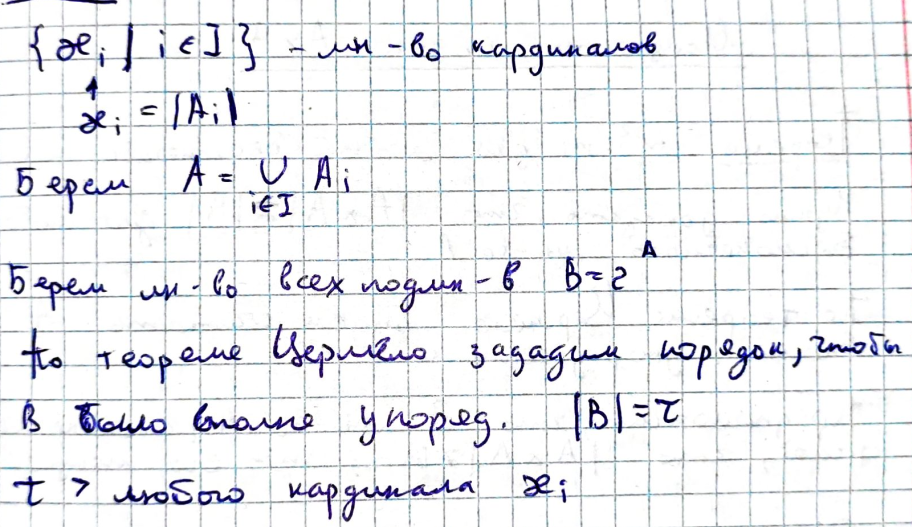 {æᵢ | i ∈ I} - мн-во кардиналов
æᵢ = |Aᵢ|
Берем A = ∪ Aᵢ
i∈I
Берем мн-во всех подмн-в B = 2ᴬ
По теореме Цермело зададим порядок, чтобы
B было вполне упоряд. |B| = τ
τ > любого кардинала æᵢ